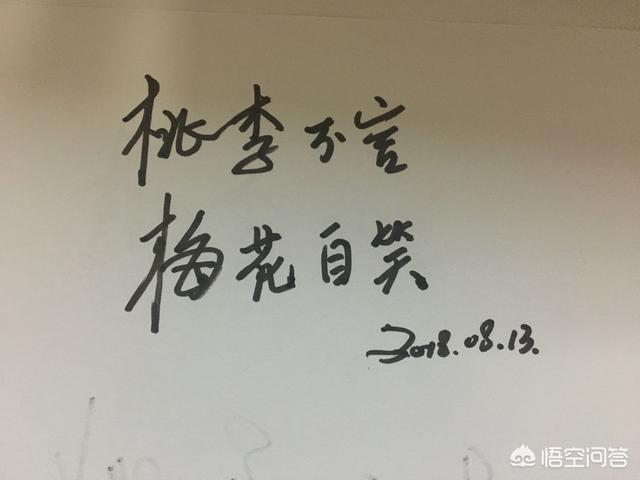 桃李不言
梅花自笑
2018.08.13.
悟空问答